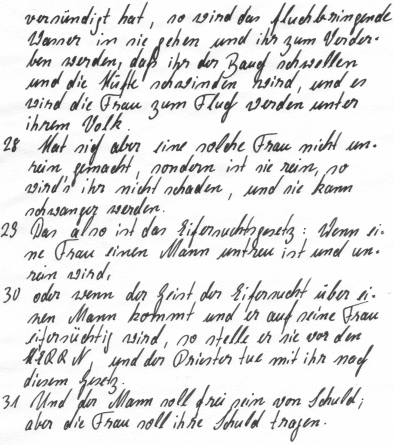 versündigt hat, so wird das fluchbringende
Wasser in sie gehen und ihr zum Verder-
ben werden, daß ihr der Bauch schwellen
und die Hüfte schwinden wird, und es
wird die Frau zum Fluch werden unter
ihrem Volk.
28 Hat sich aber eine solche Frau nicht un-
rein gemacht, sondern ist sie rein, so
wird's ihr nicht schaden, und sie kann
schwanger werden.
29 Das also ist das Eifersuchtsgesetz: Wenn ei-
ne Frau einem Mann untreu ist und un-
rein wird,
30 oder wenn der Geist der Eifersucht über ei-
nen Mann kommt und er auf seine Frau
eifersüchtig wird, so stelle er sie vor den
HERRN, und der Priester tue mit ihr nach
diesem Gesetz.
31 Und der Mann soll frei sein von Schuld;
aber die Frau soll ihre Schuld tragen.